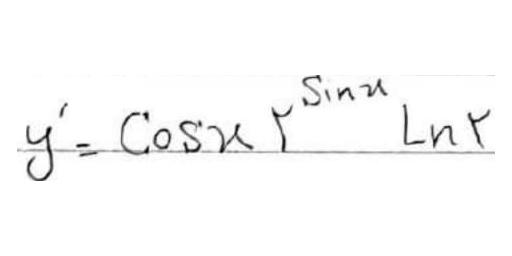 y' = Cosx ۲^Sinx Ln۲